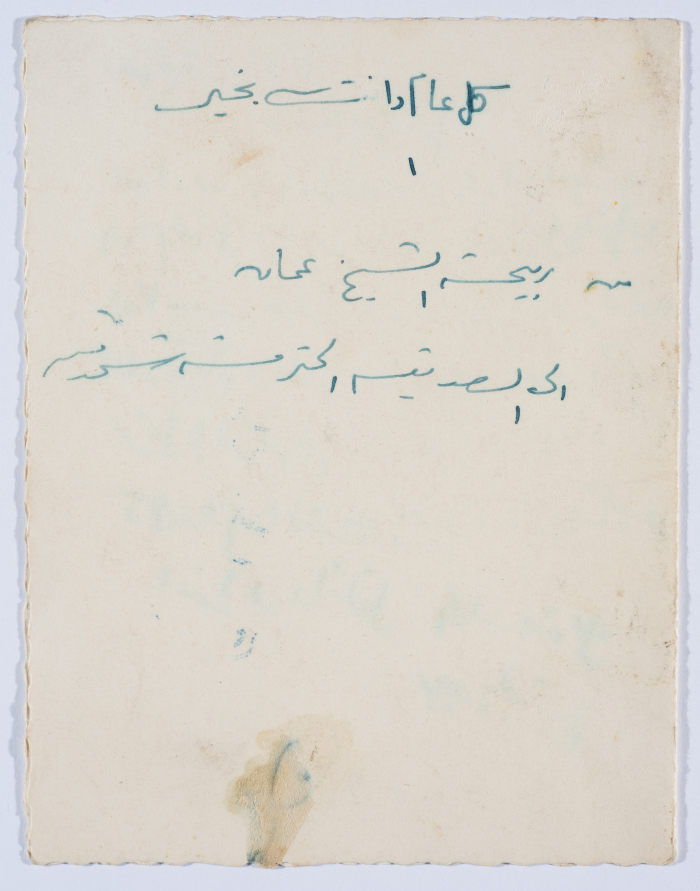 كل عام وانت بخير
من ربيحة الشيخ عمان
الى الصديقة المحترمة